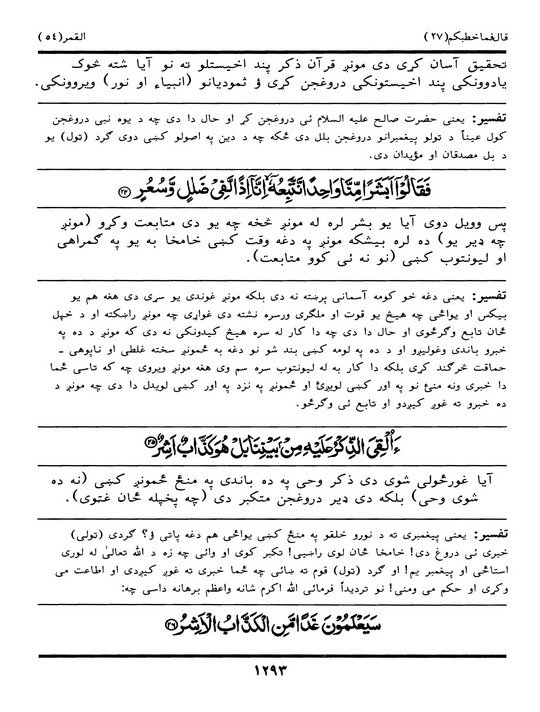 قال فما خطبكم(٢٧) القمر(٥٤)
تحقیق آسان کړی دی مونږ قرآن ذکر پند اخیستلو ته نو آیا شته څوک
یادوونکی پند اخیستونکی دروغجن کړی ؤ ثمودیانو (انبیاء او نور) ویروونکی.
تفسیر: یعنی حضرت صالح علیه السلام ئی دروغجن کړ او حال دا دی چه د یوه نبی دروغجن
کول عیناً د تولو پیغمبرانو دروغجن بلل دی ځکه چه د دین په اصولو کښی دوی گرد (تول) یو
د بل مصدقان او مؤیدان دی.
فَقَالُوْٓا اَبَشَرًا مِّنَّا وَاحِدًا نَّتَّبِعُهٗٓ اِنَّآ اِذًا لَّفِیْ ضَلٰلٍ وَّسُعُرٍ ﴿٢٤﴾
پس وویل دوی آیا یو بشر لره له مونږ څخه چه یو دی متابعت وکړو (مونږ
چه ډیر یو) ده لره بیشکه مونږ په دغه وقت کښی خامخا به یو په گمراهی
او لیونتوب کښی (نو نه ئی کوو متابعت).
تفسیر: یعنی دغه خو کومه آسمانی پرښته نه دی بلکه مونږ غوندی یو سړی دی هغه هم یو
بیکس او یواځی چه هیڅ یو قوت او ملگری ورسره نشته دی غواړی چه مونږ راښکته او د خپل
ځان تابع وگرځوی او حال دا دی چه دا کار له سره هیڅ کیدونکی نه دی که مونږ د ده په
خبرو باندی وغولیږو او د ده په لومه کښی بند شو نو دغه به ځمونږ سخته غلطی او ناپوهی ـ
حماقت څرگند کړی بلکه دا کار به له لیونتوب سره سم وی هغه مونږ ویروی چه که تاسی ځما
دا خبری ونه منئ نو په اور کښی لویږئ او ځمونږ په نزد په اور کښی لویدل دا دی چه مونږ د
ده خبرو ته غوږ کیږدو او تابع ئی وگرځو.
ءَاُلْقِیَ الذِّكْرُ عَلَیْهِ مِنْۢ بَیْنِنَا بَلْ هُوَ كَذَّابٌ اَشِرٌ ﴿٢٥﴾
آیا غورځولی شوی دی ذکر وحی په ده باندی په منځ ځمونږ کښی (نه ده
شوی وحی) بلکه دی ډیر دروغجن متکبر دی (چه پخپله ځان غتوی).
تفسیر: یعنی پیغمبری ته د نورو خلقو په منځ کښی یواځی هم دغه پاتی ؤ؟ گردی (تولی)
خبری ئی دروغ دی! خامخا ځان لوی راښیی! تکبر کوی او وائی چه زه د الله تعالیٰ له لوری
استاځی او پیغمبر یم! او گرد (تول) قوم ته ښائی چه ځما خبری ته غوږ کیږدی او اطاعت می
وکړی او حکم می ومنی! نو تردیداً فرمائی الله اکرم شانه واعظم برهانه داسی چه:
سَیَعْلَمُوْنَ غَدًا مَّنِ الْكَذَّابُ الْاَشِرُ ﴿٢٦﴾
١٢٩٣